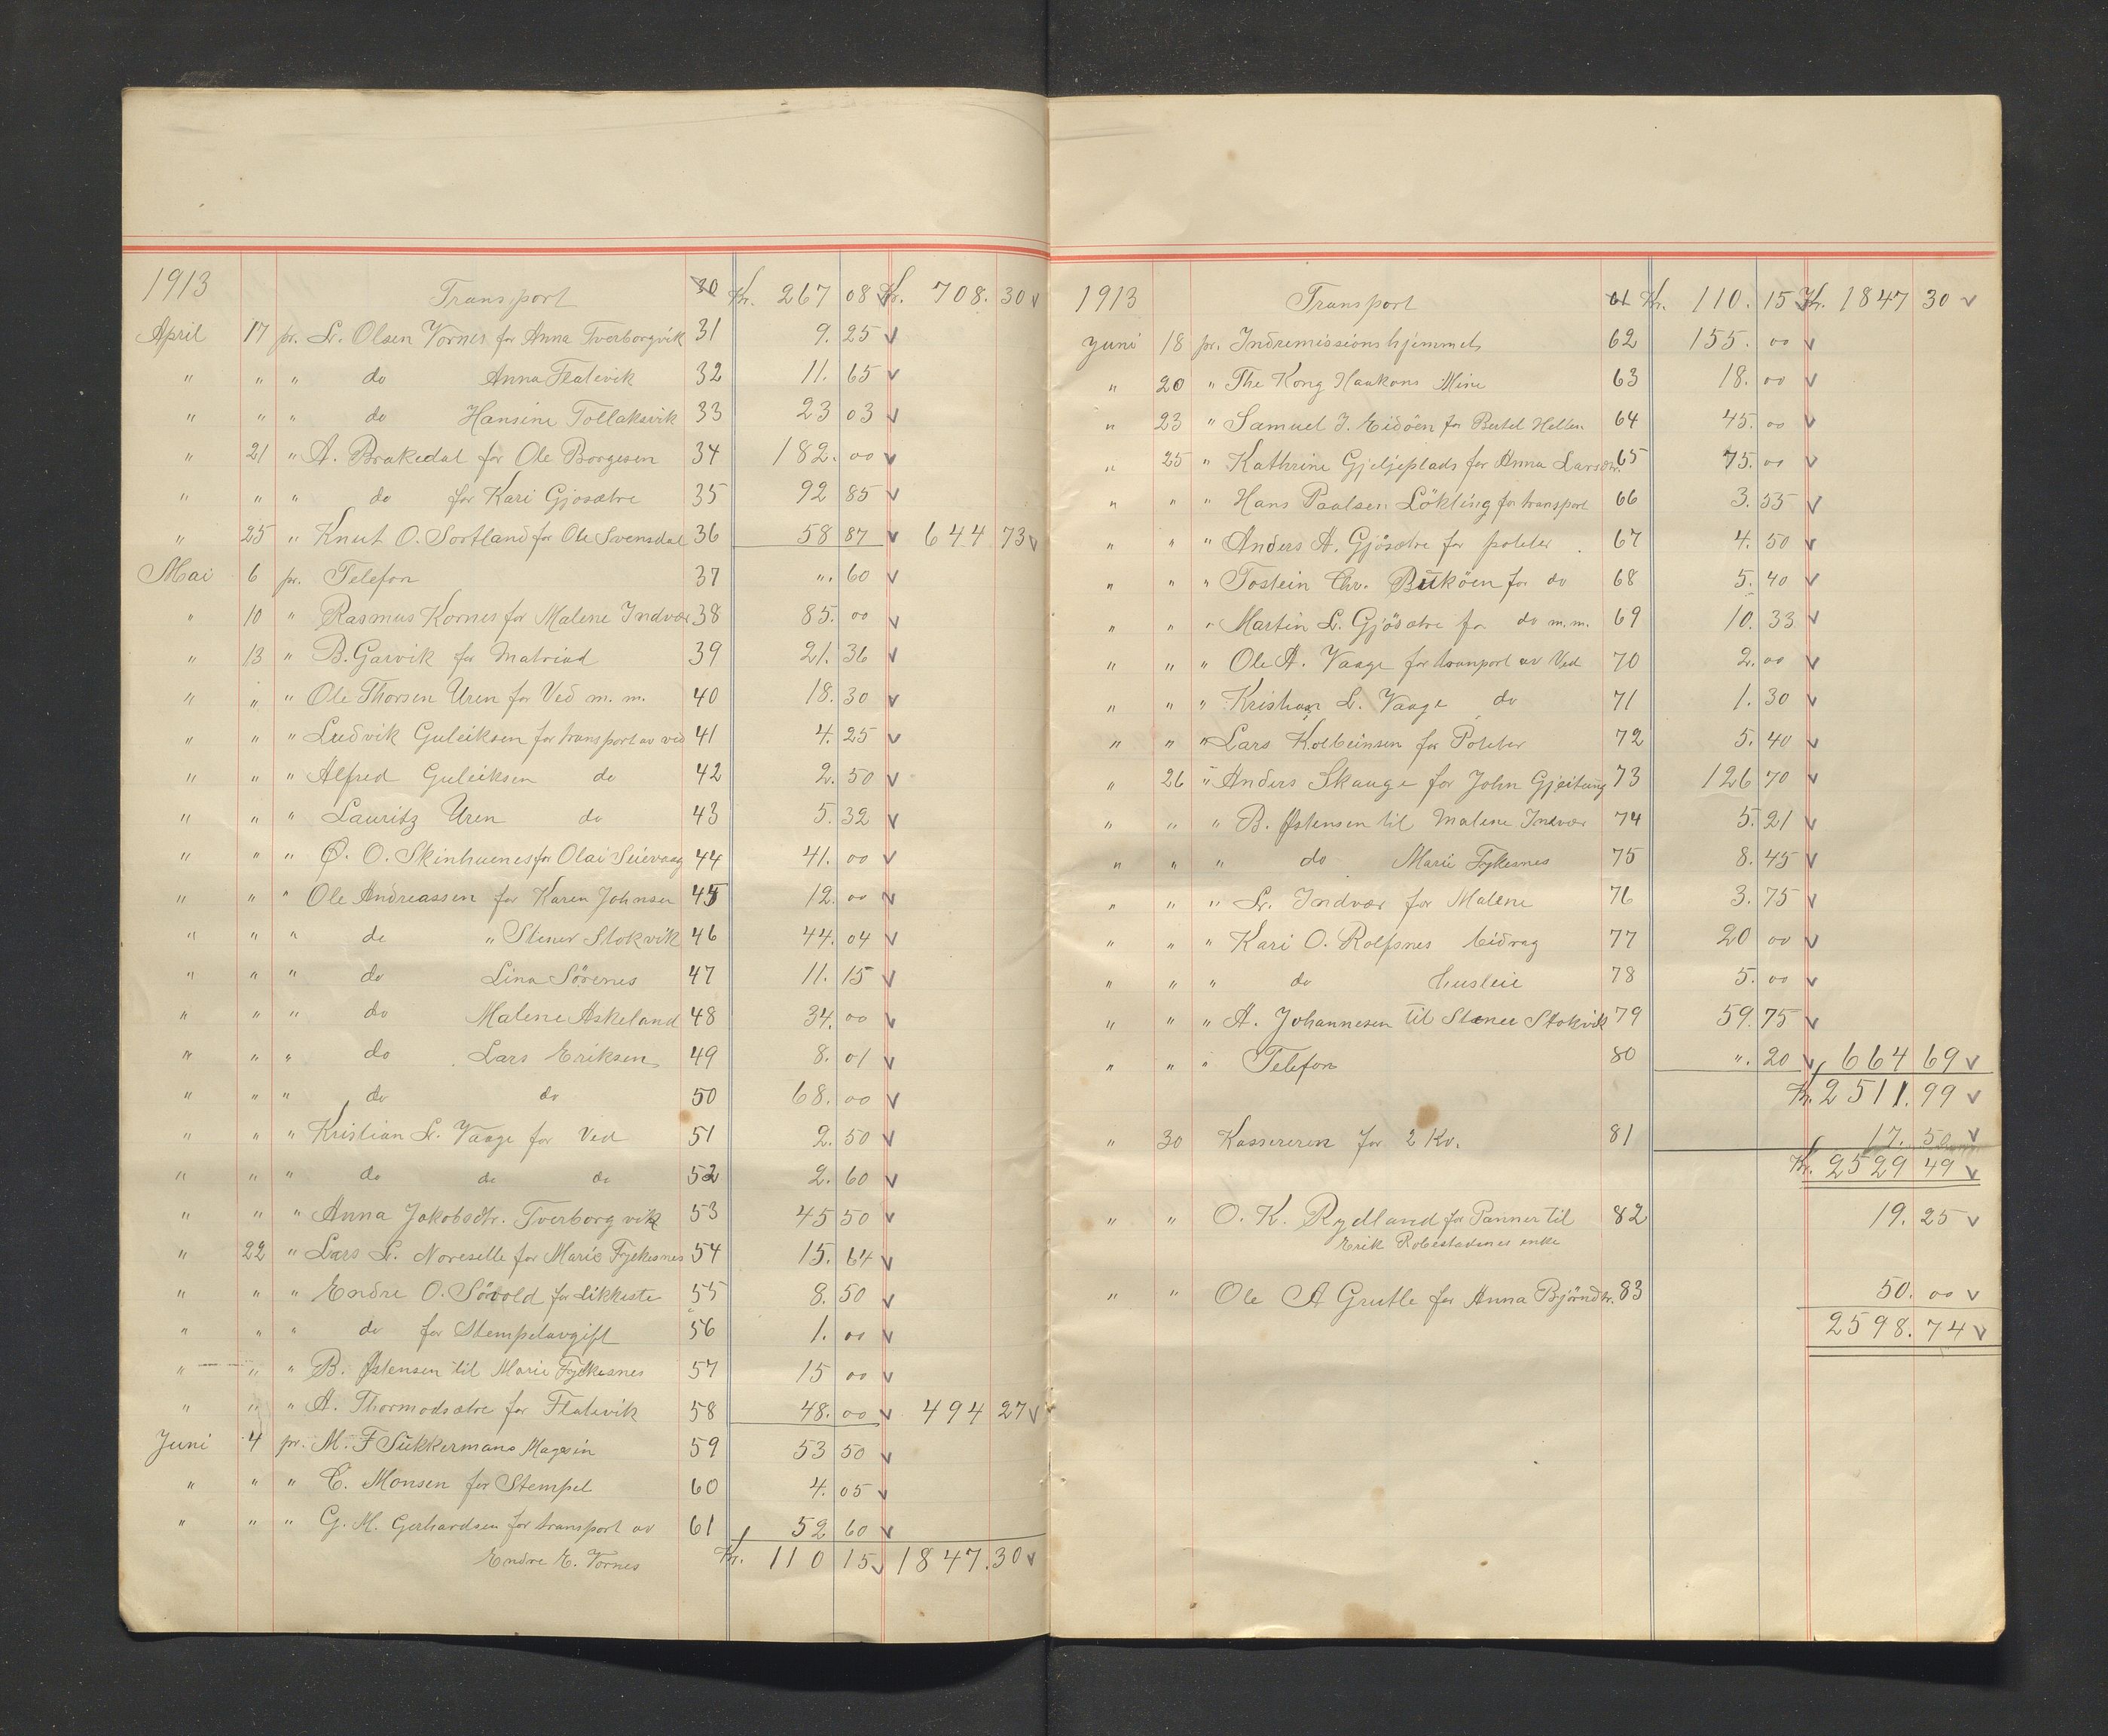 1913 Transport 30 Kr. 267 08 Kr. 708. 30
April 17 pr. Lr. Olsen Vornes for Anna Tverborgvik 31 9. 25
" " " do Anna Flatevik 32 11. 65
" " " do Hansine Tollaksvik 33 23 03
" 21 " A. Brakedal for Ole Borgesen 34 182. 00
" " " do for Kari Gjosætre 35 92 85
" 25 " Knut O. Sortland for Ole Svensdal 36 58 87 644 73
Mai 6 pr. Telefon 37 ". 60
" 10 " Rasmus Kornes for Malene Indvær 38 85. 00
" 13 " B. Garvik for Matriad 39 21. 36
" " " Ole Thorsen Uren for Ved m. m. 40 18. 30
" " " Ludvik Guleiksen for transport av ved 41 4. 25
" " " Alfred Guleiksen do 42 2. 50
" " " Lauritz Uren do 43 5. 32
" " " Ø. O. Skinhuenes for Olai Seievaag 44 41. 00
" " " Ole Andreassen for Karen Johnsen 45 12. 00
" " " do " Stener Stokvik 46 44. 04
" " " do Lina Sörenes 47 11. 15
" " " do Malene Askeland 48 34. 00
" " " do Lars Eriksen 49 8. 01
" " " do do 50 68. 00
" " " Kristian Lr. Vaage for Ved 51 2. 50
" " " do do do 52 2. 60
" " " Anna Jakobsdtr. Tverborgvik 53 45 50
" 22 " Lars Lr. Noreselle for Marie Fykesnes 54 15. 64
" " " Endre O. Sörvold for Likkiste 55 8. 50
" " " do for Stempelavgift 56 1. 00
" " " B. Østensen til Marie Fykesnes 57 15 00
" " " A. Thormodsætre for Flatevik 58 48. 00 494 27
Juni 4 pr. M. F Sukkermans Magesin 59 53 50
" " " C. Monsen for Stempel 60 4. 05
" " " G. M. Gerhardsen for transport av 61 52 60
Endre E. Vornes Kr. 110 15 1847. 30
1913 Transport 61 Kr. 110. 15 Kr. 1847 30
Juni 18 pr. Indremissionshjemmet 62 155. 00
" 20 " The Kong Haakons Mine 63 18. 00
" 23 " Samuel J. Eidöen for Bertel Hellen 64 45. 00
" 25 " Kathrine Gjeljeplads for Anna Larsdtr. 65 75. 00
" " " Hans Paalsen Lökling for transport 66 3. 55
" " " Anders A. Gjösætre for poteter 67 4. 50
" " " Tostein Chr. Buköen for do 68 5. 40
" " " Martin L. Gjösætre for do m.m. 69 10. 33
" " " Ole A. Vaage for transport av Ved 70 2. 00
" " " Kristian L. Vaage do 71 1. 30
" " " Lars Kolbeinsen for Poteter 72 5. 40
" 26 " Anders Skauge for John Gjeitung 73 126 70
" " " B. Østensen til Malene Indvær 74 5. 21
" " " do Marie Fykesnes 75 8. 45
" " " Lr. Indvær for Malene 76 3. 75
" " " Kari O. Rolfsnes bidrag 77 20 00
" " " do husleie 78 5. 00
" " " A. Johannesen til Stener Stokvik 79 59. 75
" " " Telefon 80 ". 20 664 69
Kr. 2511. 99
" 30 Kassereren for 2 Kv. 81 17. 50
Kr. 2529 49
" " O. K. Rydland for Panner til 82 19. 25
Erik Robestadsnes enke
" " Ole A Grutle for Anna Bjørndtr. 83 50. 00
2598. 74